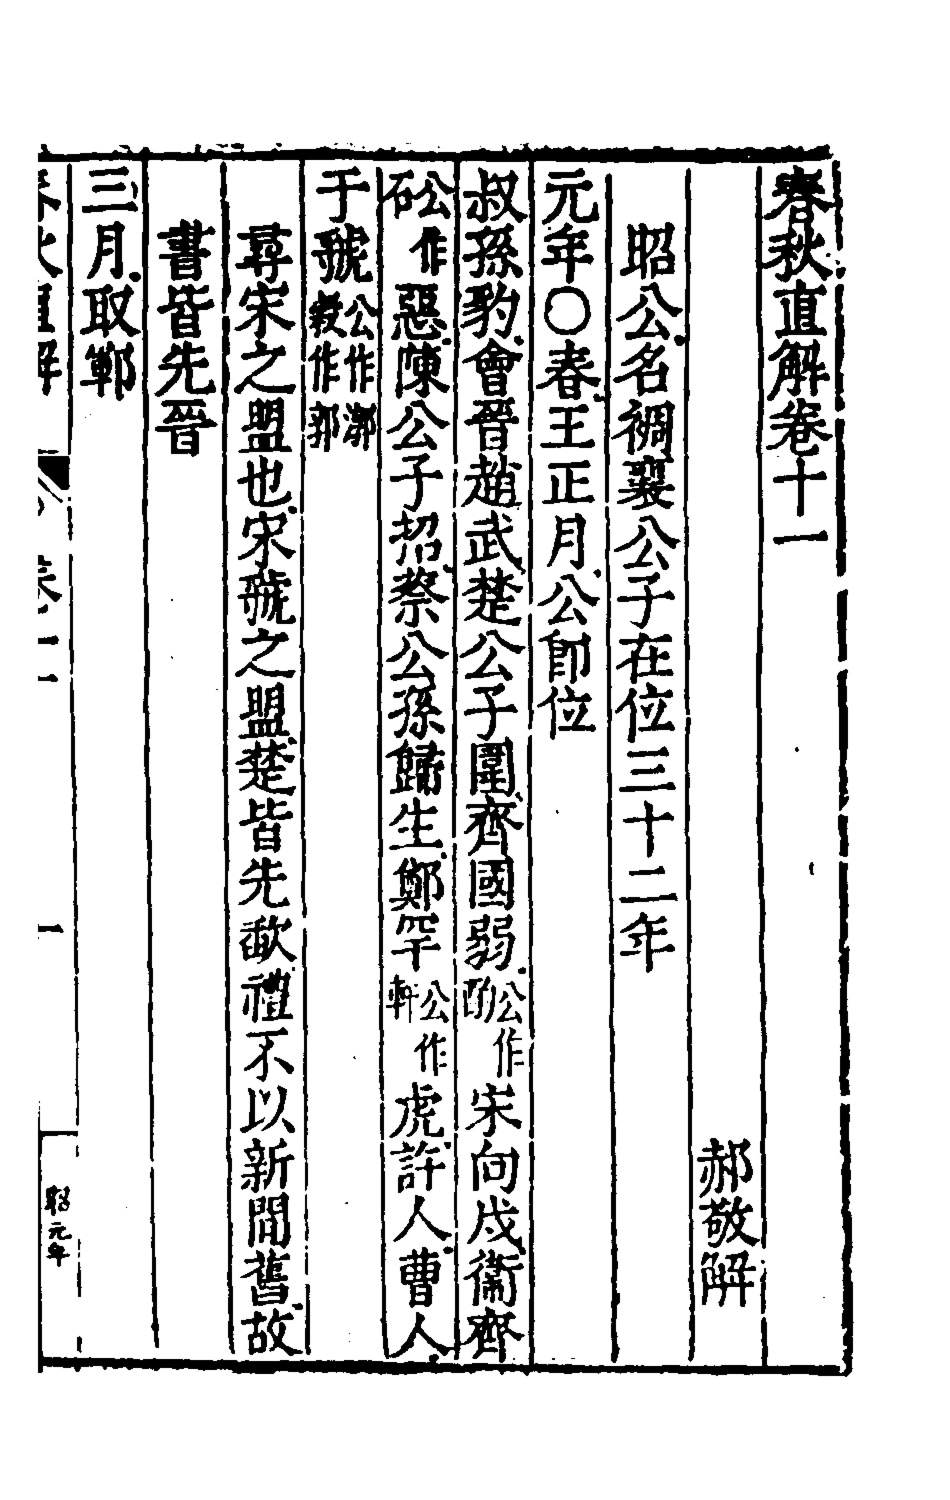 春秋直解卷十一
郝敬解
昭公名裯襄公子在位三十二年
元年〇春王正月公卽位
叔孫豹會晉趙武楚公子圍齊國弱公作酌宋向戌衞齊
公作石惡陳公子招蔡公孫歸生鄭罕公作軒虎許人曹人
于虢公作漷穀作郭
尋宋之盟也宋虢之盟楚皆先歃禮不以新間舊故
書皆先晉
三月取鄆
春秋直解 卷十一 一 昭元年